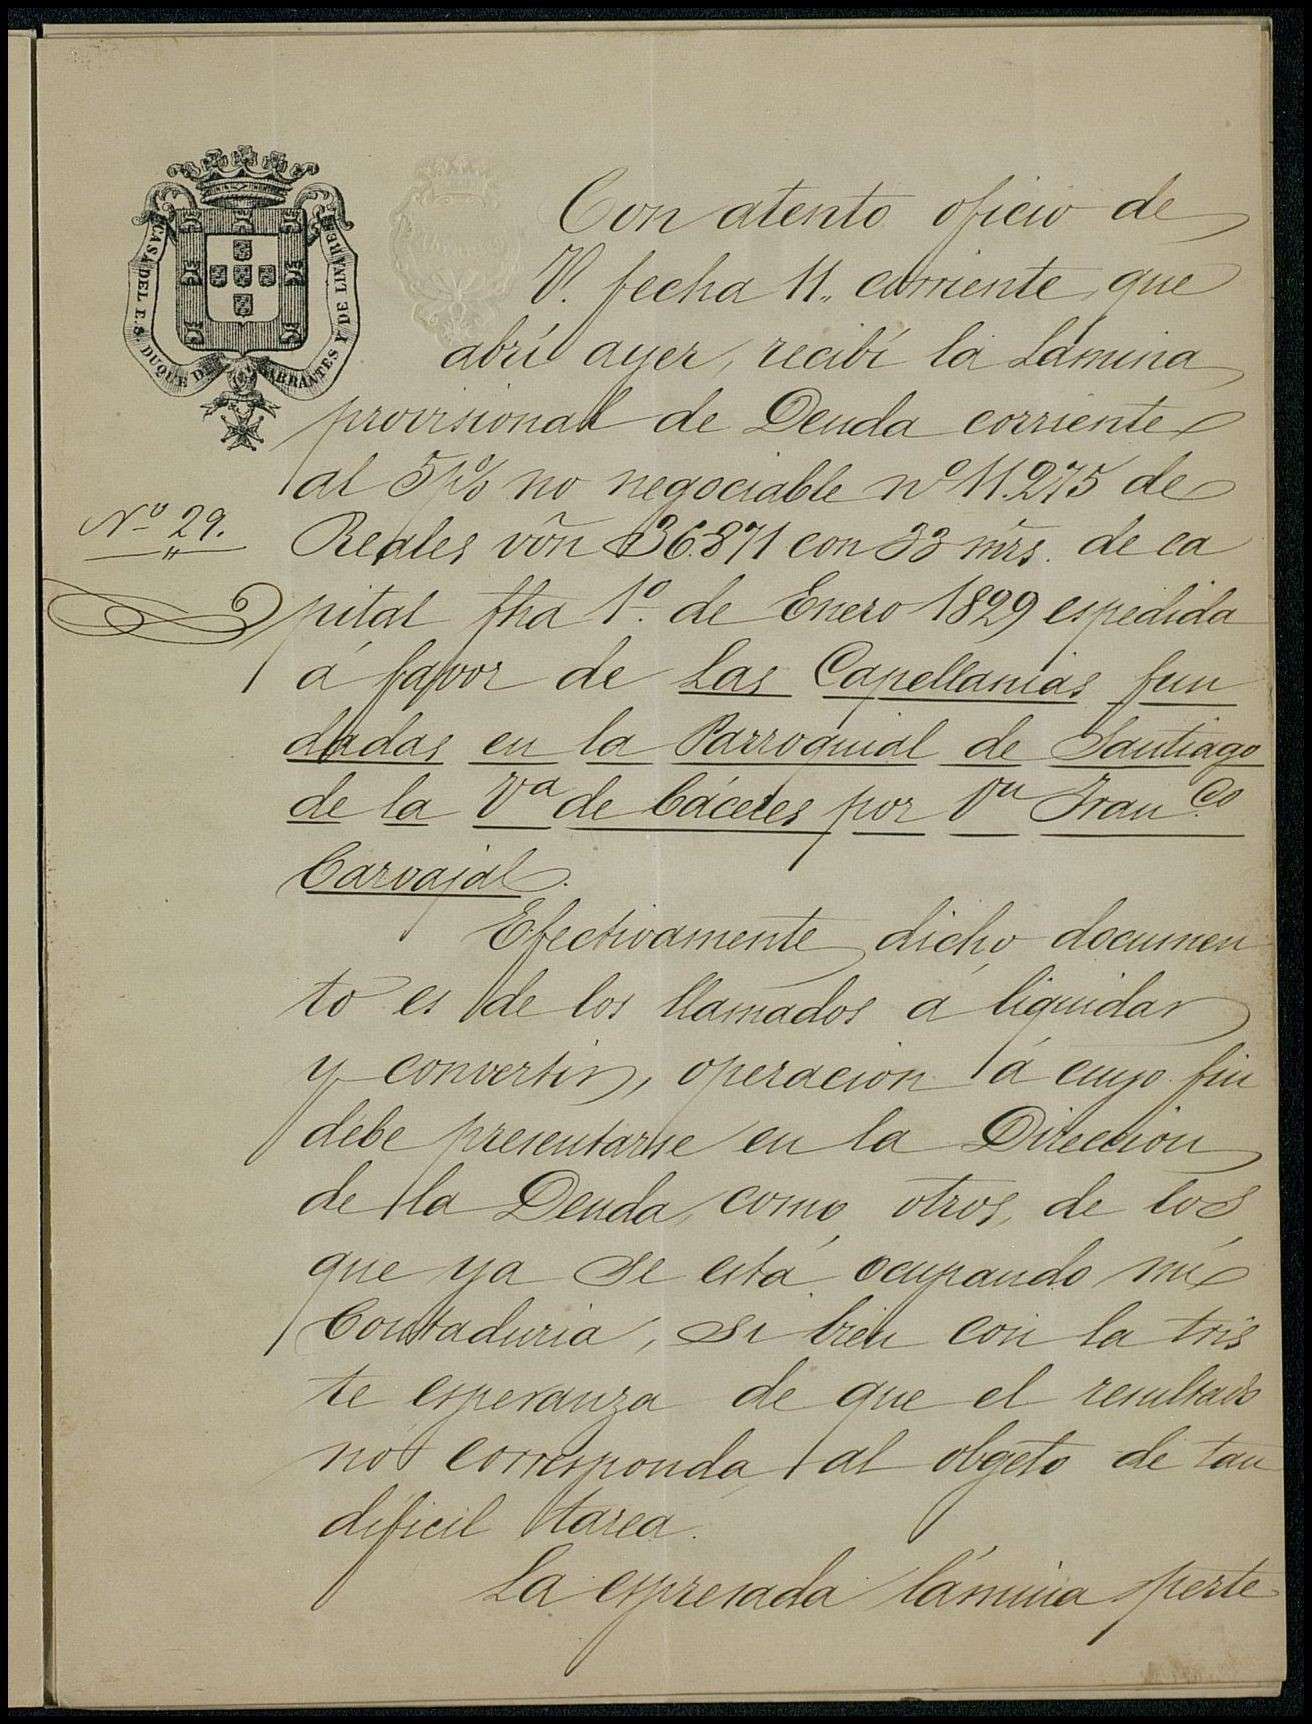 CASA DEL E. S. DUQUE DE ABRANTES Y DE LINARES
Con atento oficio de
V. fecha 11,, corriente, que
abrí ayer, recibí la Lámina
provisional de Deuda corriente
al 5 p% no negociable nº 11.275 de
Nº 29.
Reales vón 36.871 con 33 mrs. de ca
pital fha 1º. de Enero 1829 espedida
á favor de Las Capellanias fun
dadas en la Parroquial de Santiago
de la Vª de Cáceres por Dn Franco.
Carvajal.
Efectivamente dicho documen
to es de los llamados á liquidar
y convertir, operacion á cuyo fin
debe presentarse en la Direccion
de la Deuda, como otros, de los
que ya se está ocupando mi
Contaduria, si bien con la tris
te esperanza de que el resultado
no corresponda al obgeto de tan
dificil tarea.
La espresada lámina perte